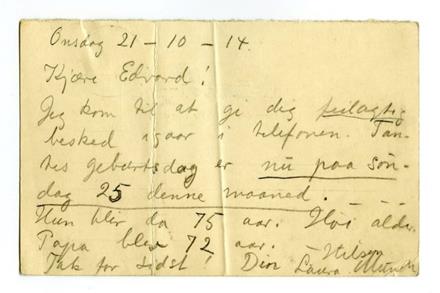 Onsdag 21 – 10 – 14.
Kjære Edvard!
Jeg kom til at gi dig feilagtig
besked igaar i telefonen. Tan-
tes geburtsdag er nu paa søn-
dag 25 denne maaned.
Hun blir da 75 aar. Høi alder.
Papa blev 72 aar.
Tak for sidst! Hilsen
Din Laura Munch